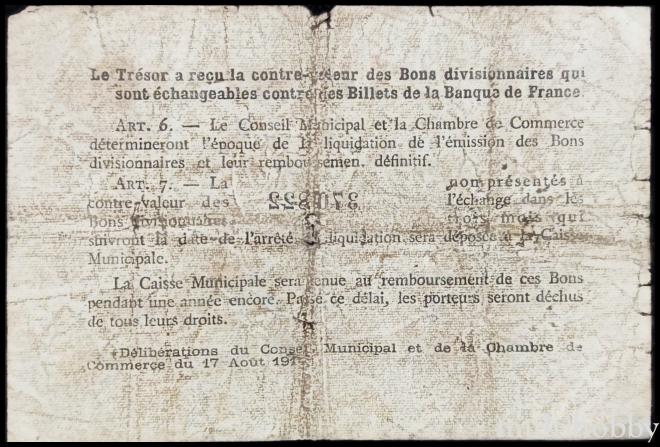 Le Trésor a reçu la contre-valeur des Bons divisionnaires qui
sont échangeables contre des Billets de la Banque de France.
ART. 6. — Le Conseil Municipal et la Chambre de Commerce
détermineront l'époque de la liquidation de l'émission des Bons
divisionnaires et leur remboursement définitif.
ART. 7. — La contre-valeur des Bons divisionnaires non présentés à
l'échange dans les trois mois qui
suivront la date de l'arrêté de liquidation sera déposée à la Caisse
Municipale.
La Caisse Municipale sera tenue au remboursement de ces Bons
pendant une année encore. Passé ce délai, les porteurs seront déchus
de tous leurs droits.
Délibérations du Conseil Municipal et de la Chambre de
Commerce du 17 Août 191